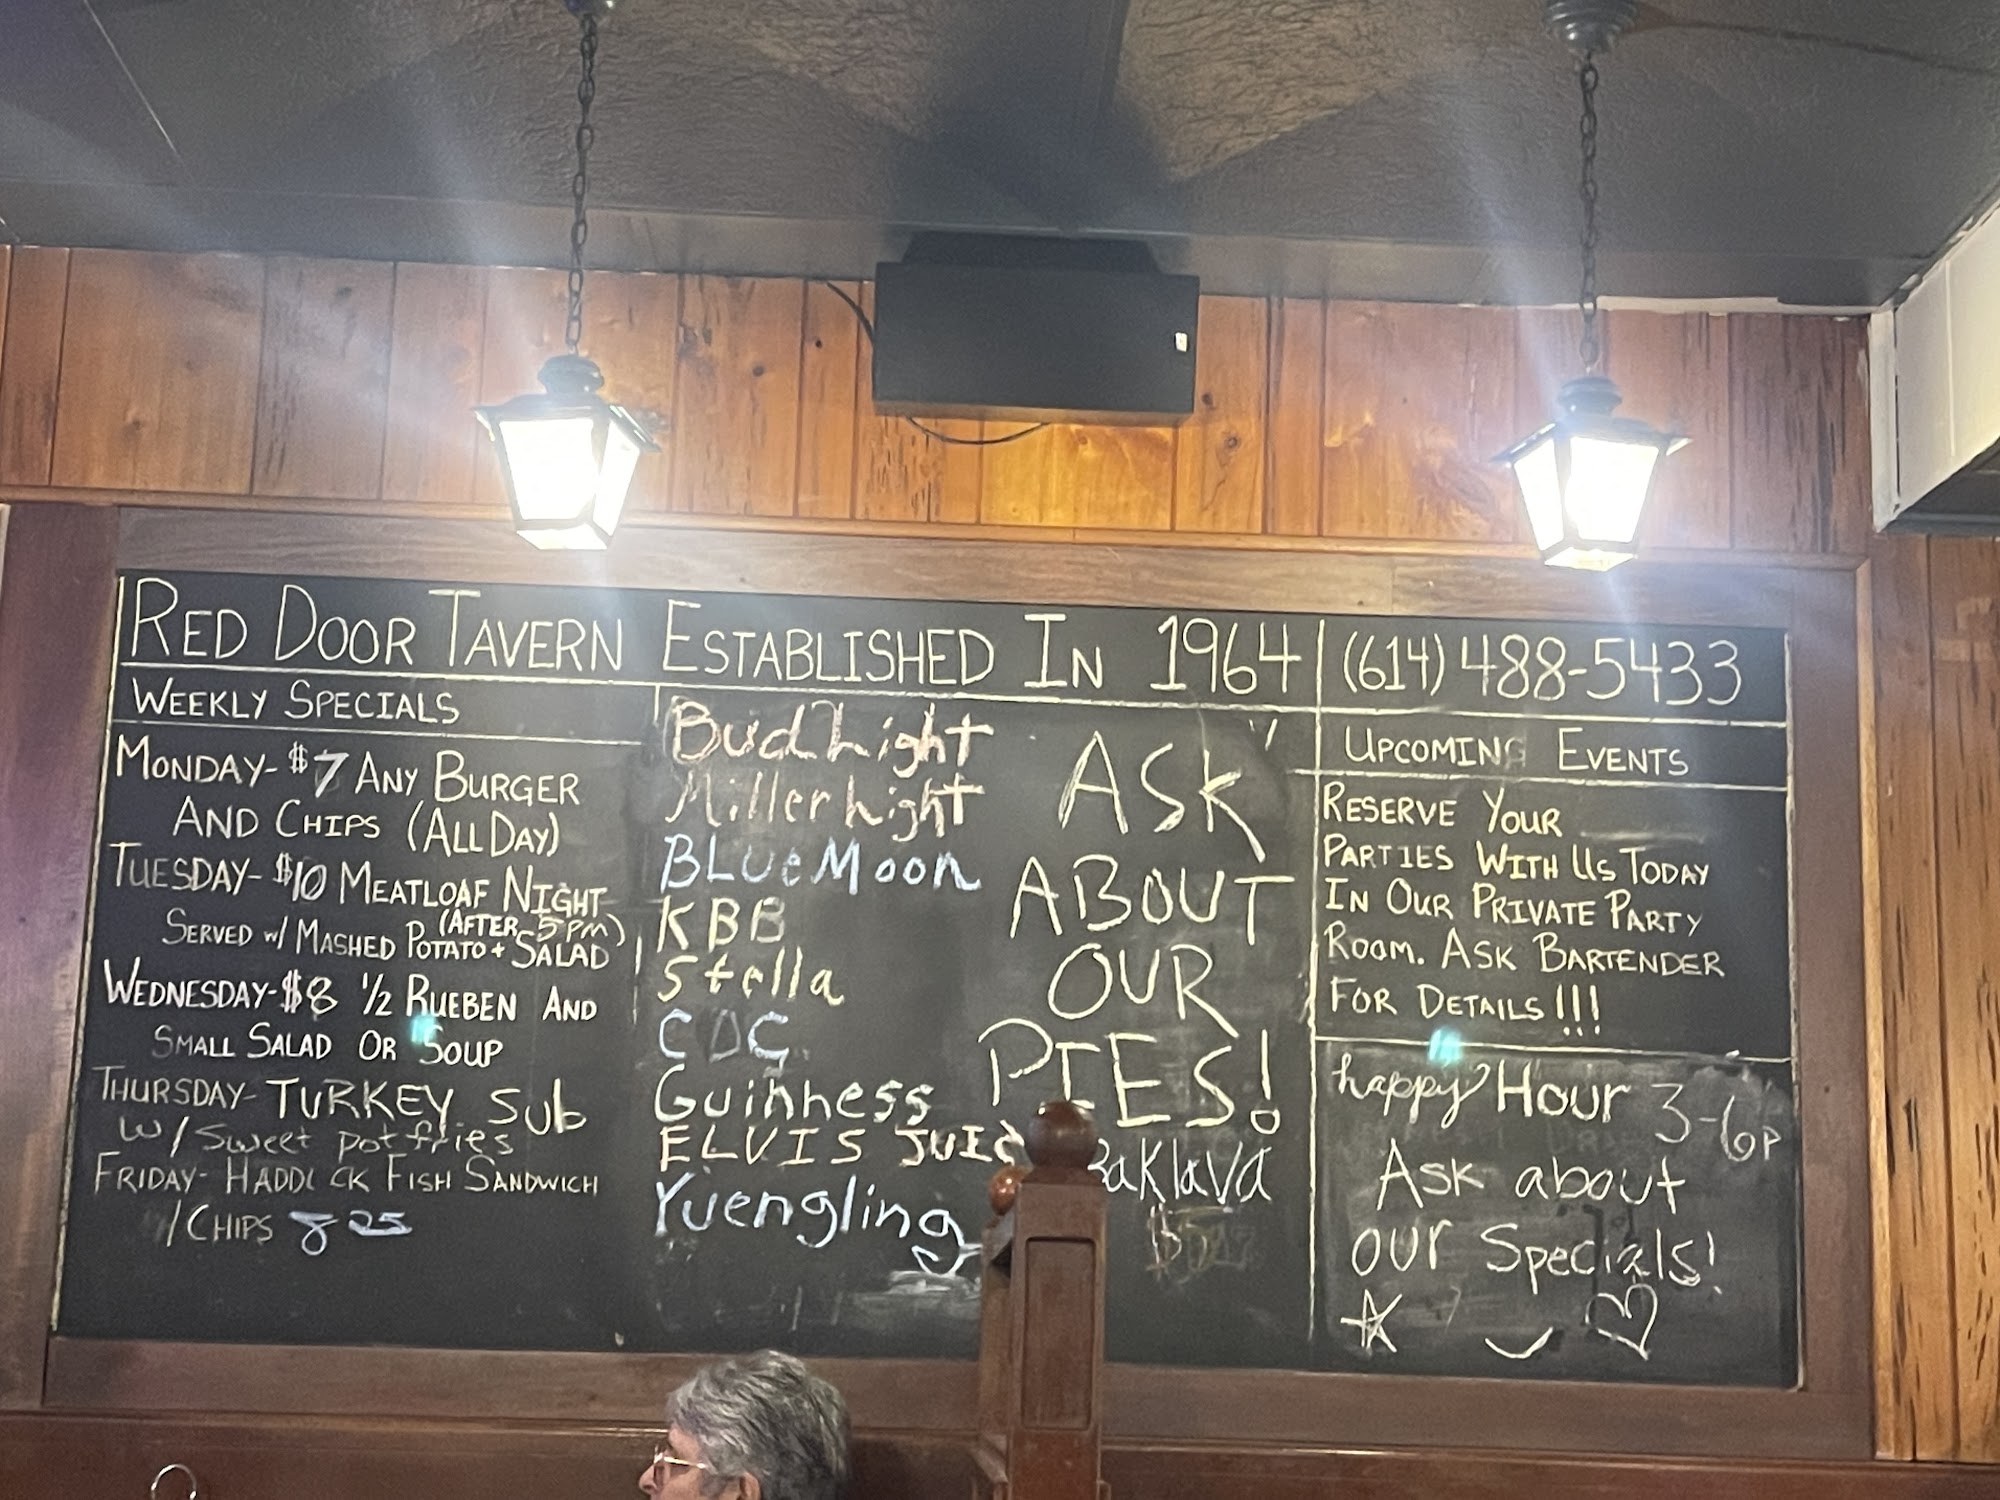 RED DOOR TAVERN ESTABLISHED IN 1964
(614) 488-5433
WEEKLY SPECIALS
MONDAY- $7 ANY BURGER
AND CHIPS (ALL DAY)
TUESDAY- $10 MEATLOAF NIGHT
(AFTER 5PM)
SERVED w/ MASHED POTATO + SALAD
WEDNESDAY- $8 1/2 RUEBEN AND
SMALL SALAD OR SOUP
THURSDAY- TURKEY SUB
W/ Sweet pot fries
FRIDAY- HADDOCK FISH SANDWICH
/CHIPS 8 25
Bud Light
Miller Light
BLUe Moon
KBB
Stella
Guinness
ELVIS JUIC
Yuengling
ASK
ABOUT
OUR
PIES!
BaKlaVa
UPCOMING EVENTS
RESERVE YOUR
PARTIES WITH US TODAY
IN OUR PRIVATE PARTY
ROOM. ASK BARTENDER
FOR DETAILS!!!
happy Hour 3-6P
Ask about
our Specials!